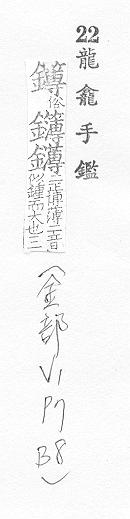 22龍龕手鑑
鏄俗鑮鎛二正補薄二音似鍾而大也三
(金部 V1 P7 B8)